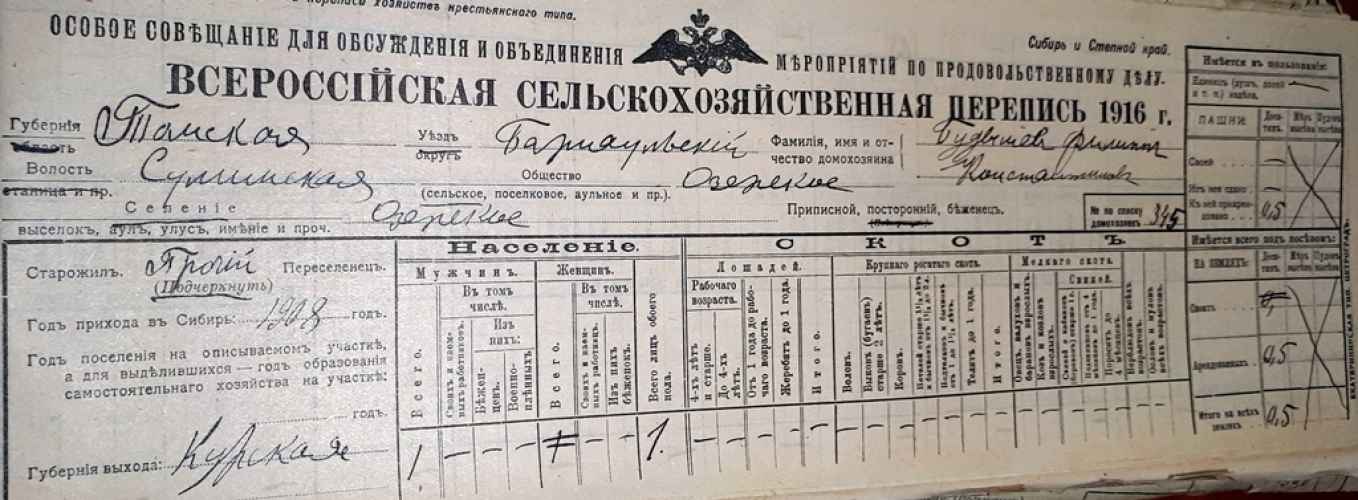 переписи хозяйствъ крестьянскаго типа.
ОСОБОЕ СОВѢЩАНІЕ ДЛЯ ОБСУЖДЕНІЯ И ОБЪЕДИНЕНІЯ МѢРОПРІЯТІЙ ПО ПРОДОВОЛЬСТВЕННОМУ ДѢЛУ.
Сибирь и Степной край.
ВСЕРОССІЙСКАЯ СЕЛЬСКОХОЗЯЙСТВЕННАЯ ПЕРЕПИСЬ 1916 г.
Губернія Томская Уѣздъ Барнаульскій Фамилія, имя и от-
область округъ чество домохозяина Константинов
Волость Сузунская Общество Озерское
станица и пр. (сельское, поселковое, аульное и пр.)
Селеніе Озерское Приписной, посторонній, бѣженецъ.
выселокъ, аулъ, улусъ, имѣніе и проч.
№ по списку домохозяевъ 345
Старожилъ. Прочій Переселенецъ.
(Подчеркнуть)
Годъ прихода въ Сибирь: 1908 годъ.
Годъ поселенія на описываемомъ участкѣ,
а для выдѣлившихся—годъ образованія
самостоятельнаго хозяйства на участкѣ:
годъ.
Губернія выхода: Курская
Населеніе.
Мужчинъ. Женщинъ.
Въ томъ числѣ. Въ томъ числѣ.
Изъ нихъ:
Всего.
Своихъ и наемныхъ работниковъ.
Бѣженцевъ.
Военноплѣнныхъ
Всего.
Своихъ и наемныхъ работницъ.
Изъ нихъ бѣженокъ.
Всего лицъ обоего пола.
1 — — — — — 1.
СКОТЪ.
Лошадей. Крупнаго рогатаго скота. Мелкаго скота.
Рабочаго возраста.
4-хъ лѣтъ и старше.
До 4-хъ лѣтъ.
Отъ 1 года до рабочаго возраста.
Жеребятъ до 1 года.
Итого.
Воловъ.
Быковъ (бугаевъ) старше 2 лѣтъ.
Коровъ.
Телятъ до 1 года.
Итого.
Свиней.
Имѣется въ пользованіи:
ПАШНИ: Десятинъ.
Своей —
Изъ нея сдано —
Къ ней приарендовано 0,5
Имѣется всего подъ посѣвомъ:
НА ЗЕМЛЯХЪ: Десятинъ.
Своихъ
Арендованныхъ 0,5
Итого на всѣхъ земляхъ 0,5